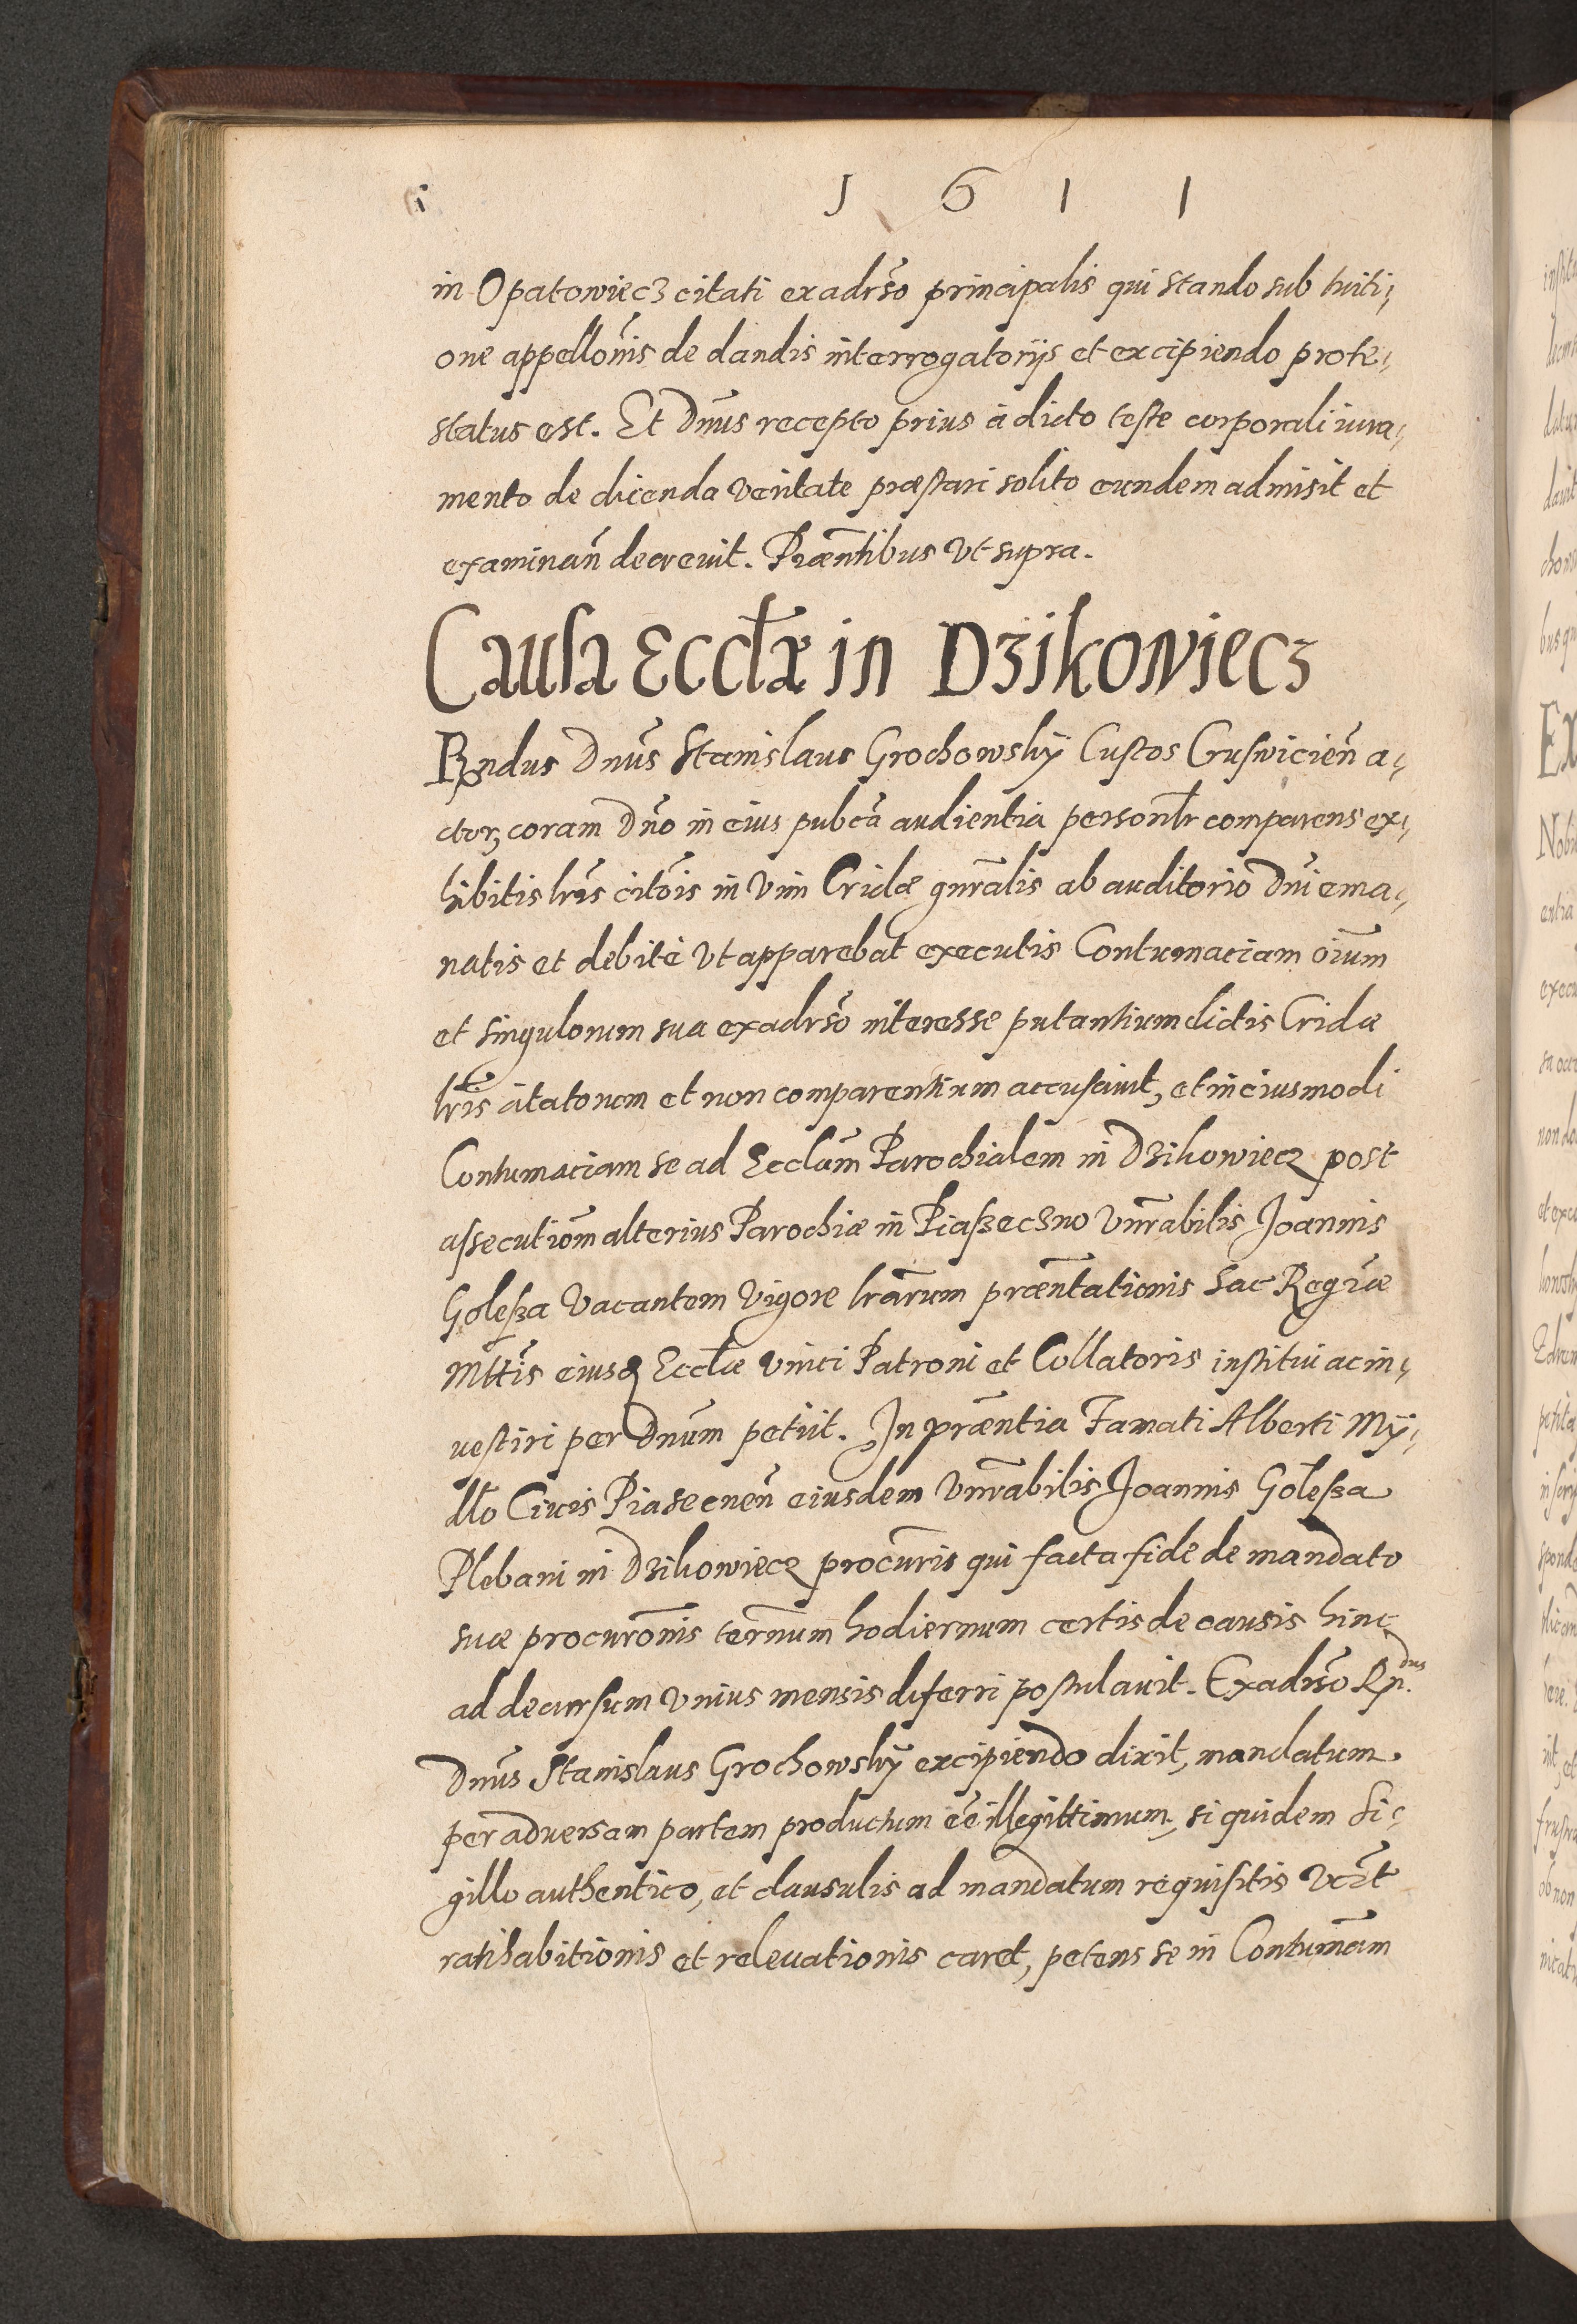 1 6 1 1
in Opatowiecz citati ex adrso principalis qui stando sub tuiti,
one appellonis de dandis interrogatorijs et excipiendo prote,
status est. Et Dnus recepto prius a dicto teste corporali iura,
mento de dicenda veritate præstari solito eundem admisit et
examinan decrevit. Præntibus vt supra.
Causa Eccłæ in Dzikowiecz
Rndus Dnus Stanislaus Grochowsky Custos Crusvicien a,
ctor, coram Dno in eius pubca audientia personlr comparens ex,
hibitis lris citois in vim Cridæ gnralis ab auditorio Dni ema,
natis et debite vt apparebat executis Contumaciam oium
et singulorum sua exadrso interesse putantium dictis Cridæ
lris citatorum et non comparentium accusavit, et in eiusmodi
Contumaciam se ad Ecclam Parochialem in Dzikowiecz post
assecutiom alterius Parochiæ in Piaßeczno Vnrabilis Joannis
Goleßa vacantem vigore lrarum præntationis Sac Regiæ
Mttis eiusq Eccłæ vnici Patroni et Collatoris institui ac in,
vestiri per Dnum petiit. In præntia Famati Alberti My,
dło Civis Piasecnen eiusdem Vnrabilis Joannis Goleßa
Plebani in Dzikowiecz procuris qui facta fide de mandato
suæ procuronis ternum hodiernum certis de causis hinc
ad decursum vnius mensis diferri postulavit. Exadrso Rn.dus
Dnus Stanislaus Grochowsky excipiendo dixit, mandatum
per adversam partem productum ee illegittimum, siquidem si,
gillo authentico, et clausulis ad mandatum requisitis vczt
ratihabitionis et relevationis caret, petens se in Contumam